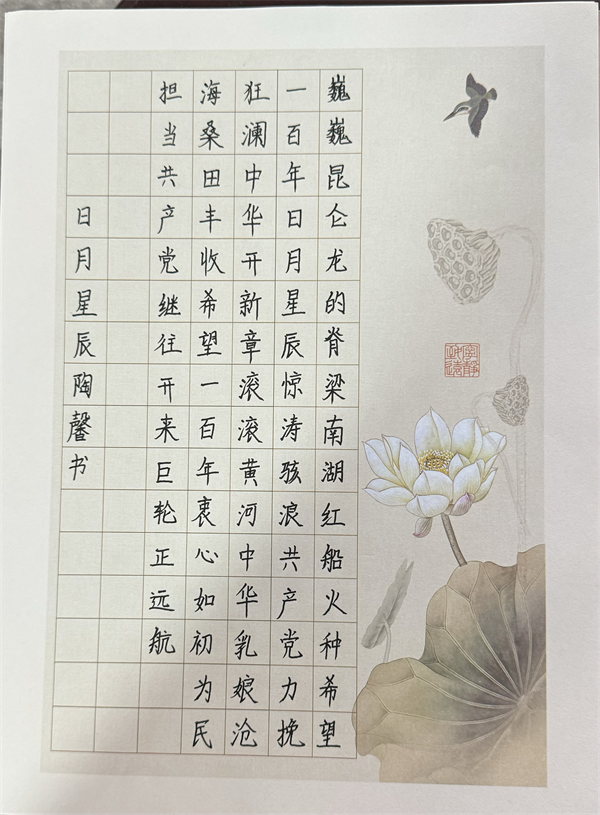 巍巍昆仑龙的脊梁南湖红船火种希望
一百年日月星辰惊涛骇浪共产党力挽
狂澜中华开新章滚滚黄河中华乳娘沧
海桑田丰收希望一百年衷心如初为民
担当共产党继往开来巨轮正远航
日月星辰陶馨书
宁静致远